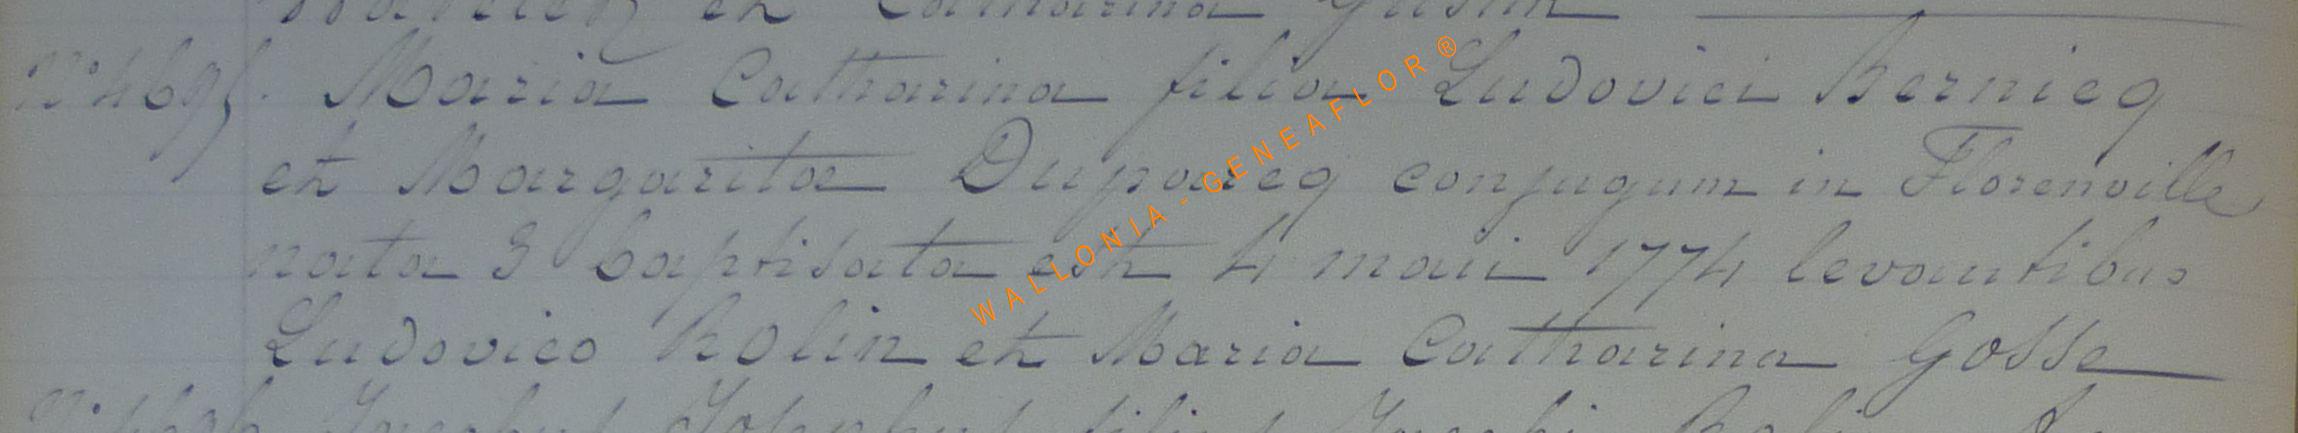 et Catharina
N° 4695. Maria Catharina filia Ludovici Bernicq
et Margarita Duparcq conjugum in Florenville
nata 3 baptisata est 4 maii 1774 levantibus
Ludovico Rolin et Maria Catharina Gosse
WALLONIA - GENEAFLOR ®